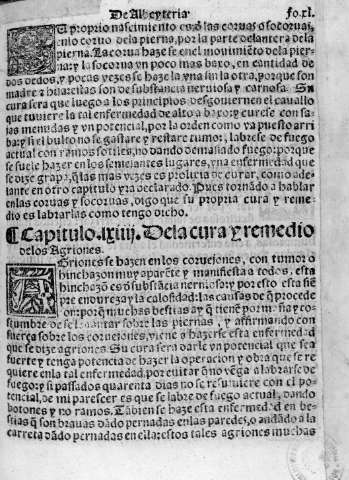 De Albeyteria. fo.xl.
Su proprio nascimiento es dlas coruas o socoruas,
enlo coruo dela pierna, por la parte delantera dela
pierna. La corua haze se en el mouimiẽto dela pier
na: y la socorua vn poco mas baxo, en cantidad de
dos dedos, y pocas vezes se haze la vna sin la otra, porque son
madre z hijas: estas son de substancia neruiosa y carnosa. Su
cura sera que luego a los principios desgouiernen el cauallo
que tuuiere la tal enfermedad de alto a baxo: y curese con fa
jas menudas y vn potencial, por la orden como va puesto arri
ba: y si el bulto no se gastare y restare tumor, labrese de fuego
actual con ramos sotiles, no dando demasiado fuego: porque
se suele hazer en los semejantes lugares, vna enfermedad que
se dize grapa, q̃ las mas vezes es prolixa de curar, como ade
lante en otro capitulo yra declarado. Pues tornãdo a hablar
en las coruas y socoruas, digo que su propria cura y reme
dio es labrarlas como tengo dicho.
¶ Capitulo. lxiiij. De la cura y remedio
delos Agriones.
Agriones se hazen en los coruejones, con tumor o
hinchazon muy aparẽte y manifiesta a todos, esta
hinchazõ es d̃ substãcia neruiosa: y por esto esta siẽ
pre endureza y la calosidad: las causas de q̃ procede
son: porq̃ muchas bestias ay q̃ tienẽ por maña y cos
tumbre de se leuantar sobre las piernas, y affirmando con
fuerça sobre los coruejones, viene a hazerse esta enfermedad
que se dize agriones. Su cura sera darle vn potencial que sea
fuerte y tenga potencia de hazer la operacion y obra que se re
quiere enla tal enfermedad, por euitar q̃ no vẽga a labrarse de
fuego: y si passados quarenta dias no se resoluiere con el po-
tencial, de mi parescer es que se labre de fuego actual, dando
botones y no ramos. Tãbien se haze esta enfermedad en be-
stias q̃ son brauas dãdo pernadas enlas paredes, o andãdo a la
carreta dãdo pernadas en ella: estos tales agriones muchas